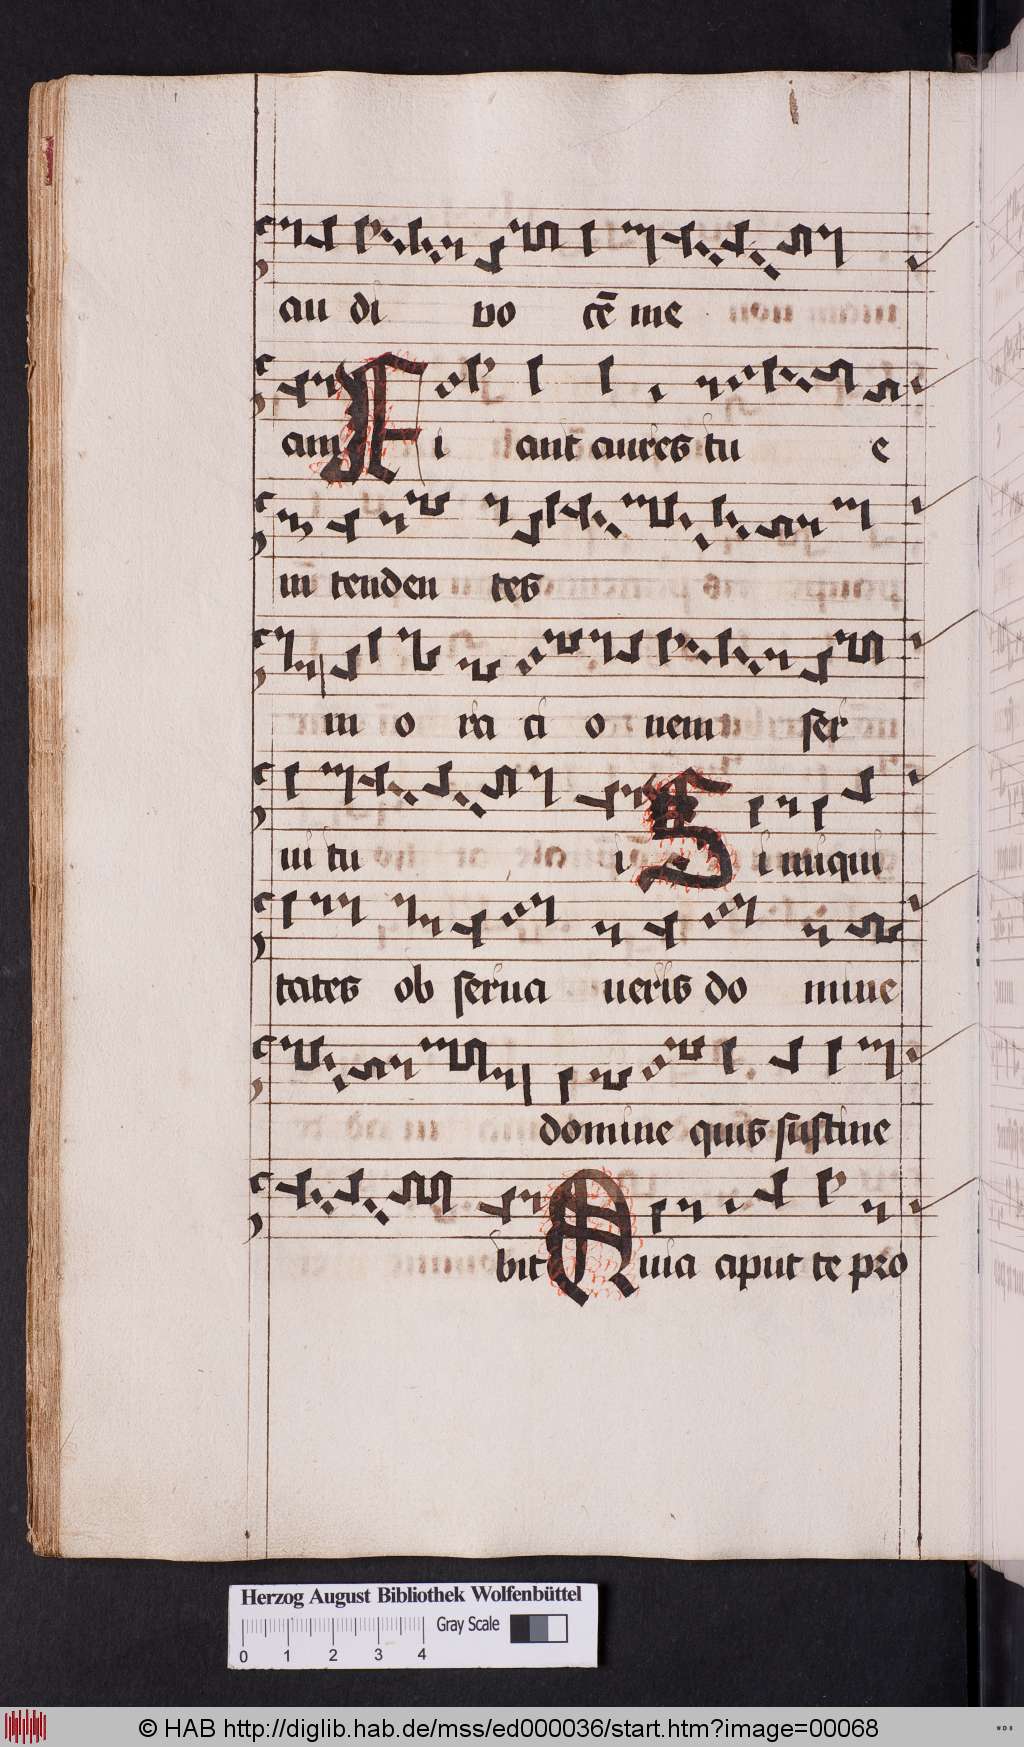 au di vo cē me
am Fi ant aures tu e
in tenden tes
in o ra ci o nem ser
ui tu i Si iniqui
tates ob serua ueris do mine
domine quis sustine
bit Quia aput te pro
Herzog August Bibliothek Wolfenbüttel
Gray Scale
0 1 2 3 4
© HAB http://diglib.hab.de/mss/ed000036/start.htm?image=00068